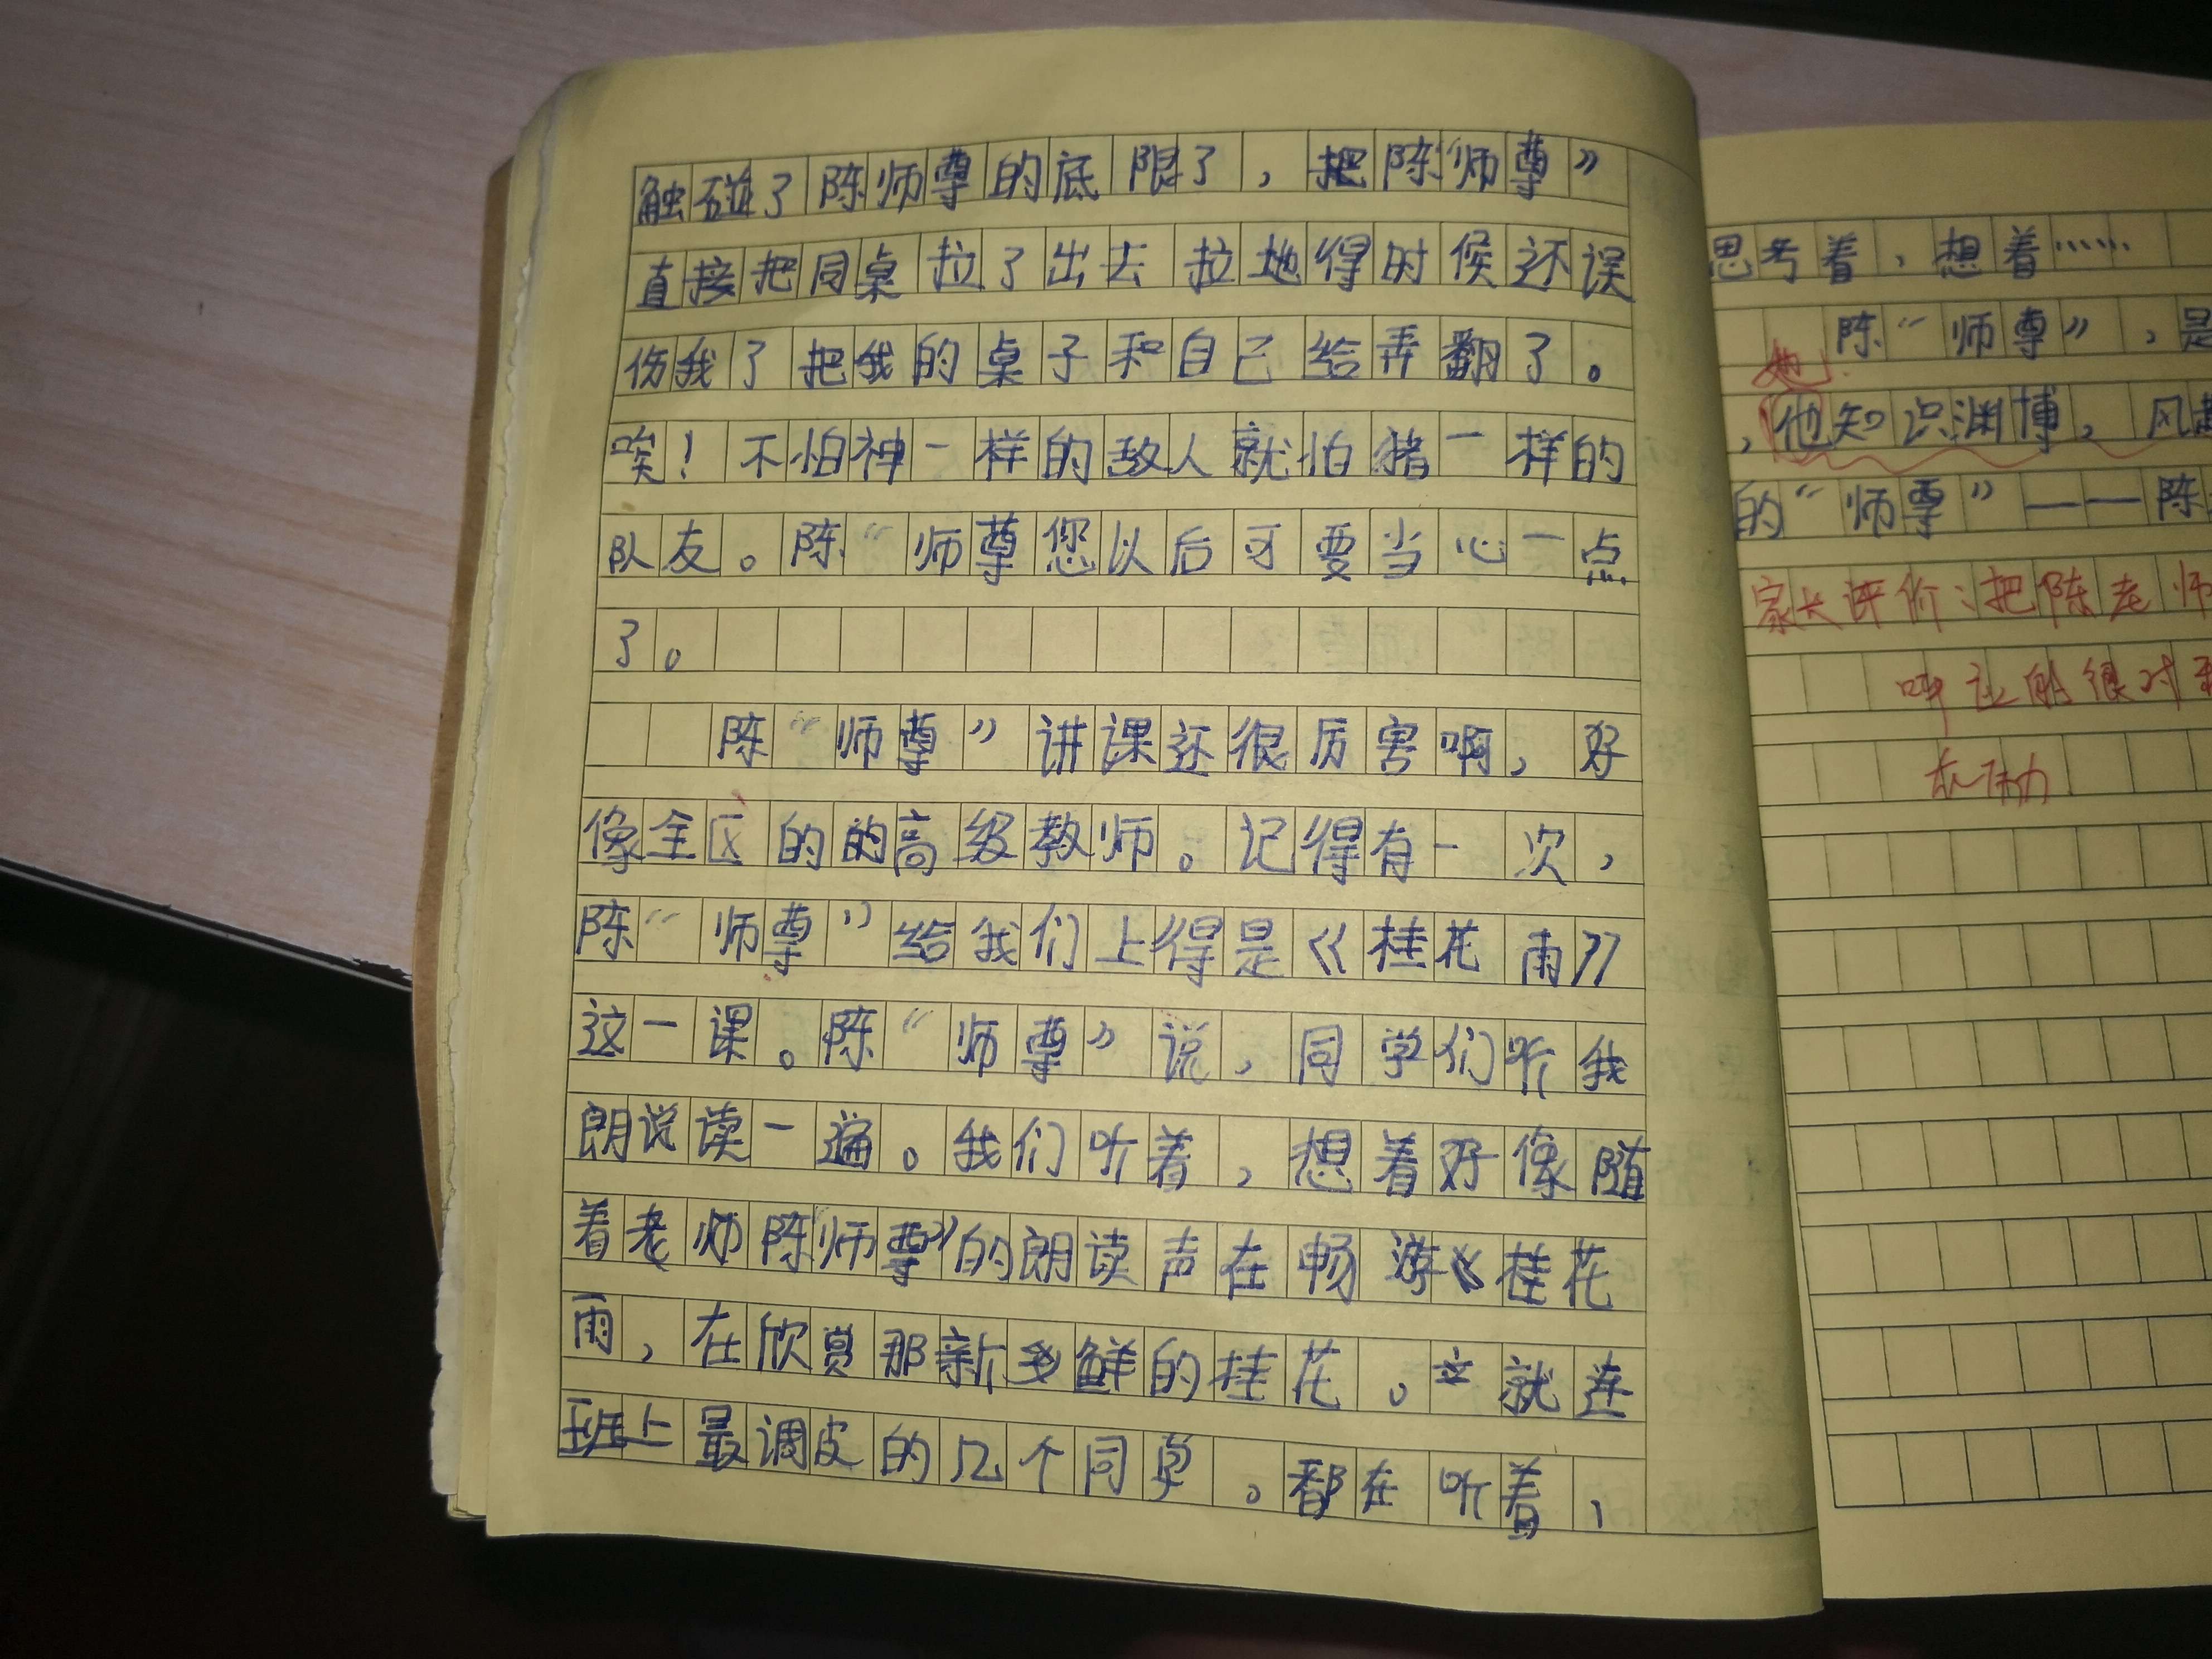 触碰了陈师尊的底限了，把陈“师尊”
直接把同桌拉了出去拉她得时候还误
伤我了把我的桌子和自己给弄翻了。
唉！不怕神一样的敌人就怕猪一样的
队友。陈“师尊您以后可要当心一点
了。
陈“师尊”讲课还很厉害啊，好
像全区的的高级教师。记得有一次，
陈“师尊”给我们上得是《桂花雨》
这一课。陈“师尊”说，同学们听我
朗说读一遍。我们听着，想着好像随
着老师陈“师尊”的朗读声在畅游《桂花
雨，在欣赏那新鲜的桂花。就连
班上最调皮的几个同桌。都在听着，
思考着，想着……
陈“师尊”，是
她
，他知识渊博，风趣
的“师尊”——陈
家长评价：把陈老师
很对